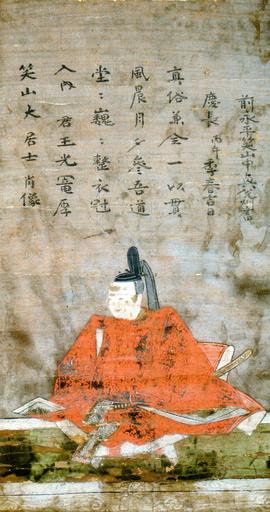 笑山大居士肖像
入内 君王光寵厚
堂〻巍〻整衣冠
風晨月夕參吾道
真俗兼全一以貫
慶長丙午季春吉日
前永平